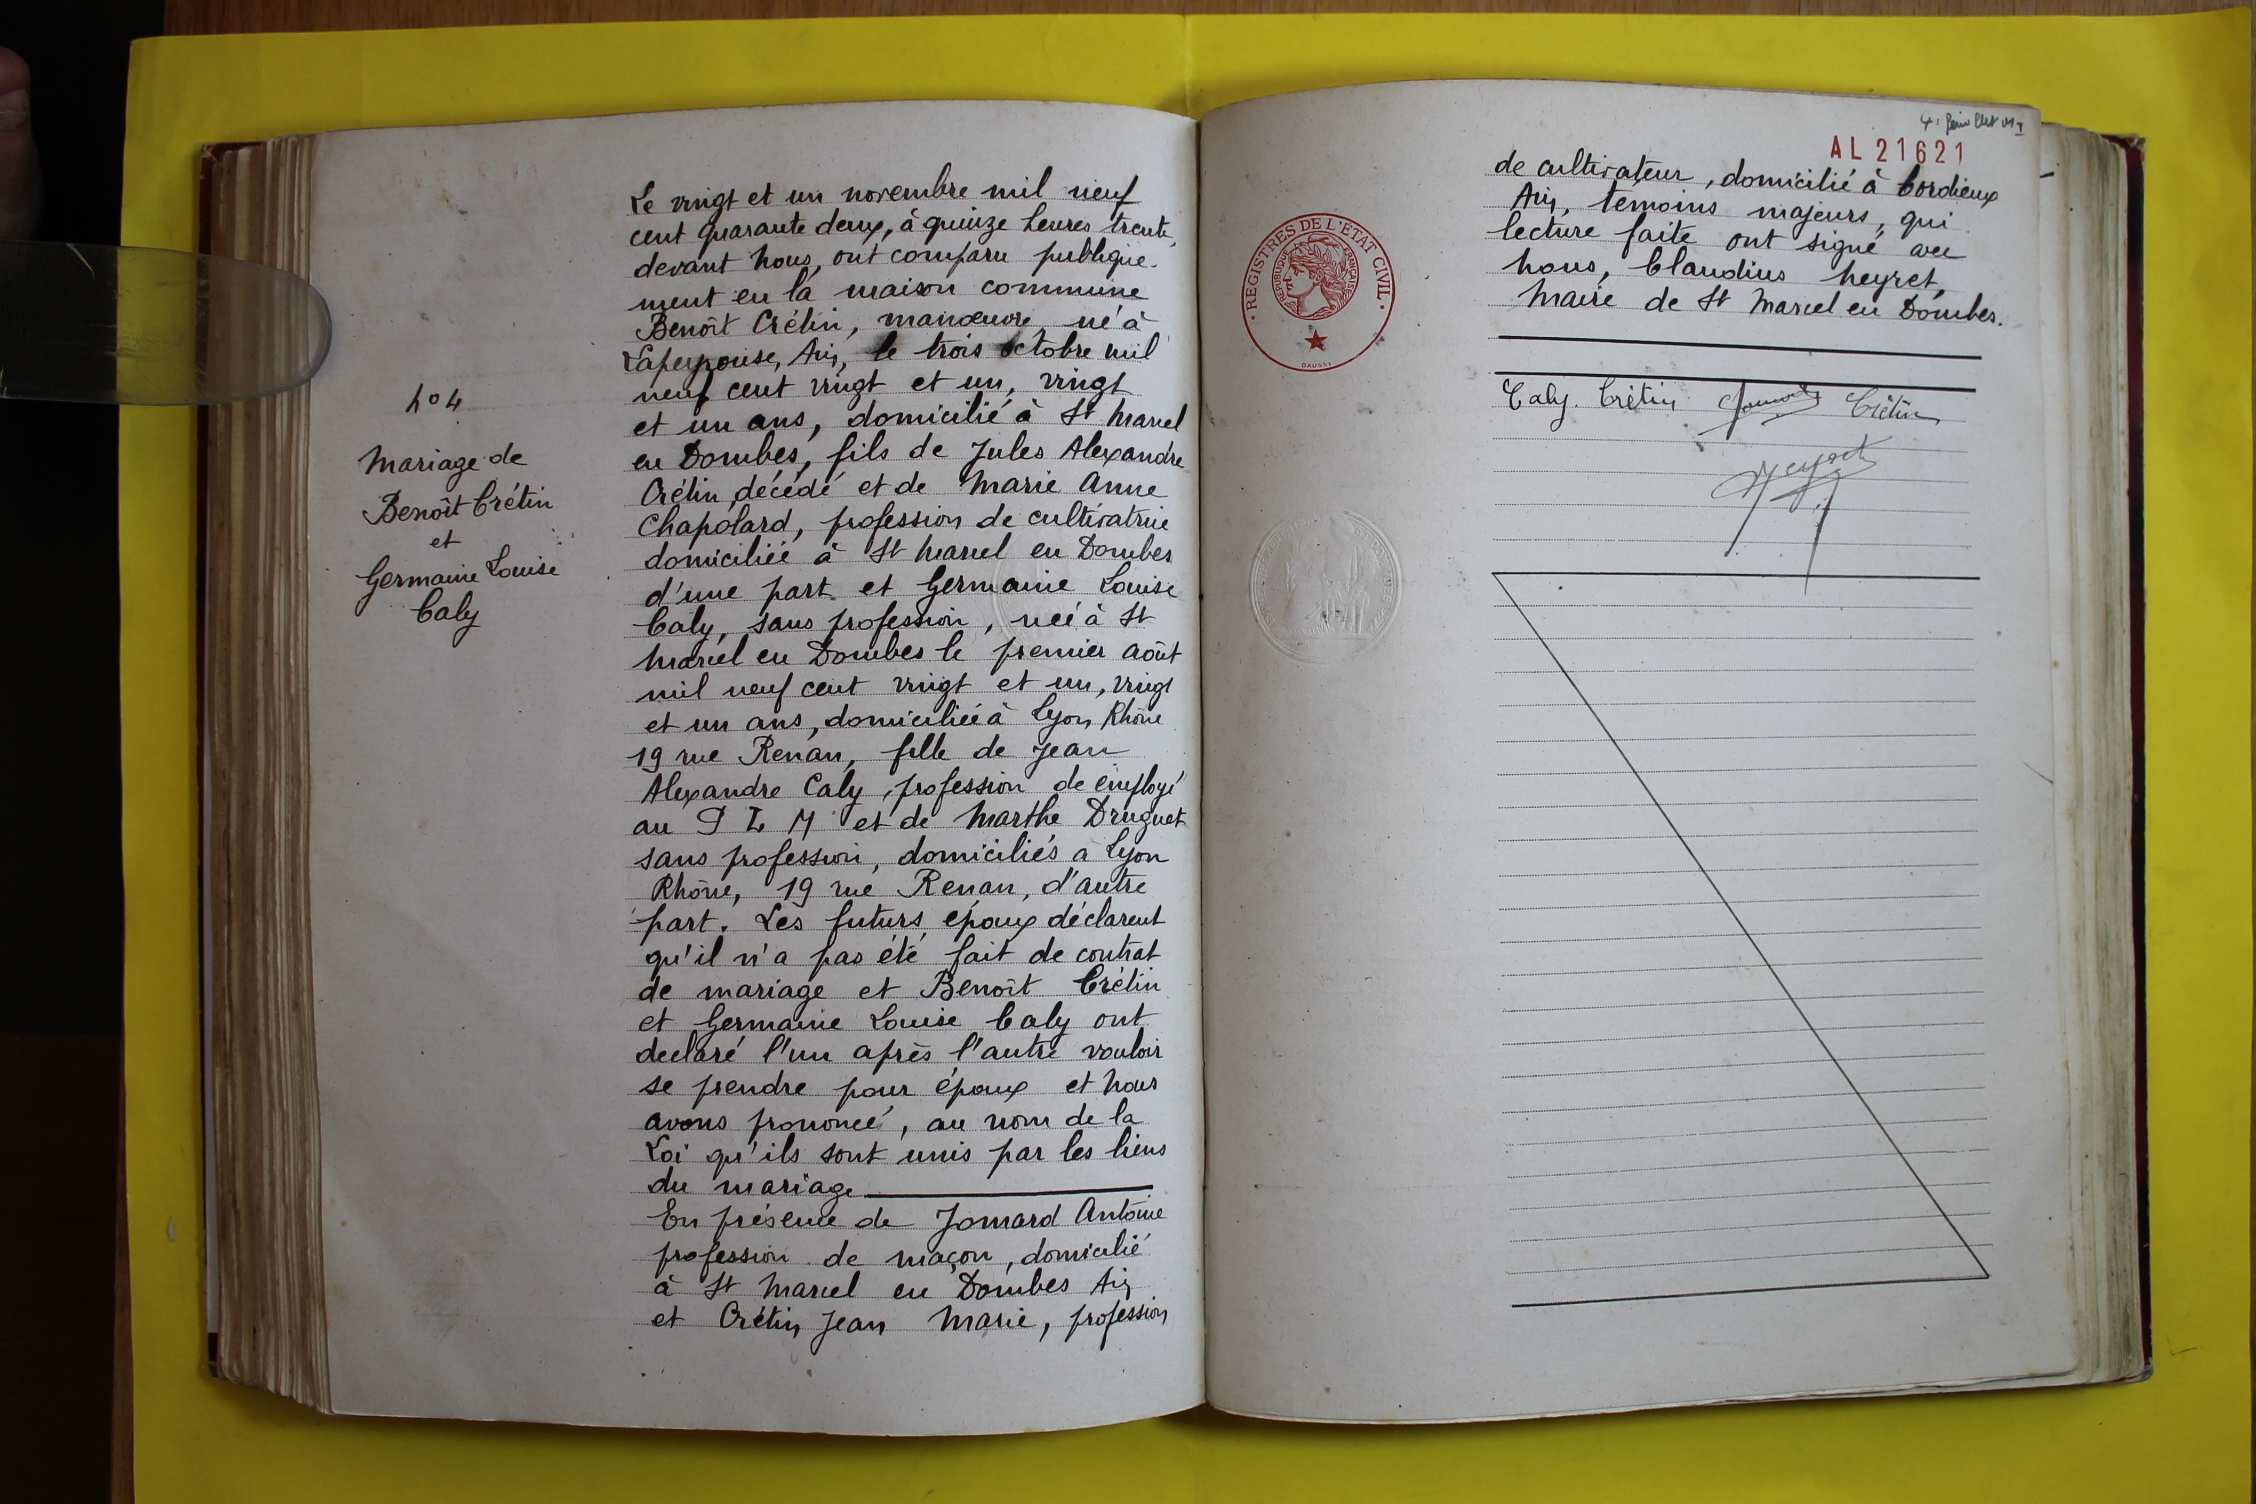 n° 4
Mariage de
Benoît Crétin
et
Germaine Louise
Caly
Le vingt et un novembre mil neuf
cent quarante deux, à quinze heures trente,
devant nous, ont comparu publique-
ment en la maison commune
Benoît Crétin, manœuvre né à
Lapeyrouse, Ain, le trois octobre mil
neuf cent vingt et un, vingt
et un ans, domicilié à St Marcel
en Dombes, fils de Jules Alexandre
Crétin décédé et de Marie Anne
Chapolard, profession de cultivatrice
domiciliée à St Marcel en Dombes
d'une part et Germaine Louise
Caly, sans profession, née à St
Marcel en Dombes le premier août
mil neuf cent vingt et un, vingt
et un ans, domiciliée à Lyon, Rhône
19 rue Renan, fille de Jean
Alexandre Caly, profession de employé
au P L M et de Marthe Druguet
sans profession, domiciliés à Lyon
Rhône, 19 rue Renan, d'autre
part. Les futurs époux déclarent
qu'il n'a pas été fait de contrat
de mariage et Benoît Crétin
et Germaine Louise Caly ont
declaré l'un après l'autre vouloir
se prendre pour époux et nous
avons prononcé, au nom de la
Loi qu'ils sont unis par les liens
du mariage
En présence de Jomard Antoine
profession de maçon, domicilié
à St Marcel en Dombes Ain
et Crétin Jean Marie, profession
AL 21621
de cultivateur, domicilié à Cordieux
Ain, témoins majeurs, qui
lecture faite ont signé avec
nous, Claudius Neyret,
Maire de St Marcel en Dombes.
REGISTRES DE L'ETAT CIVIL
REPUBLIQUE FRANÇAISE
DAUSSY
Caly Crétin Jomard Crétin
Neyret